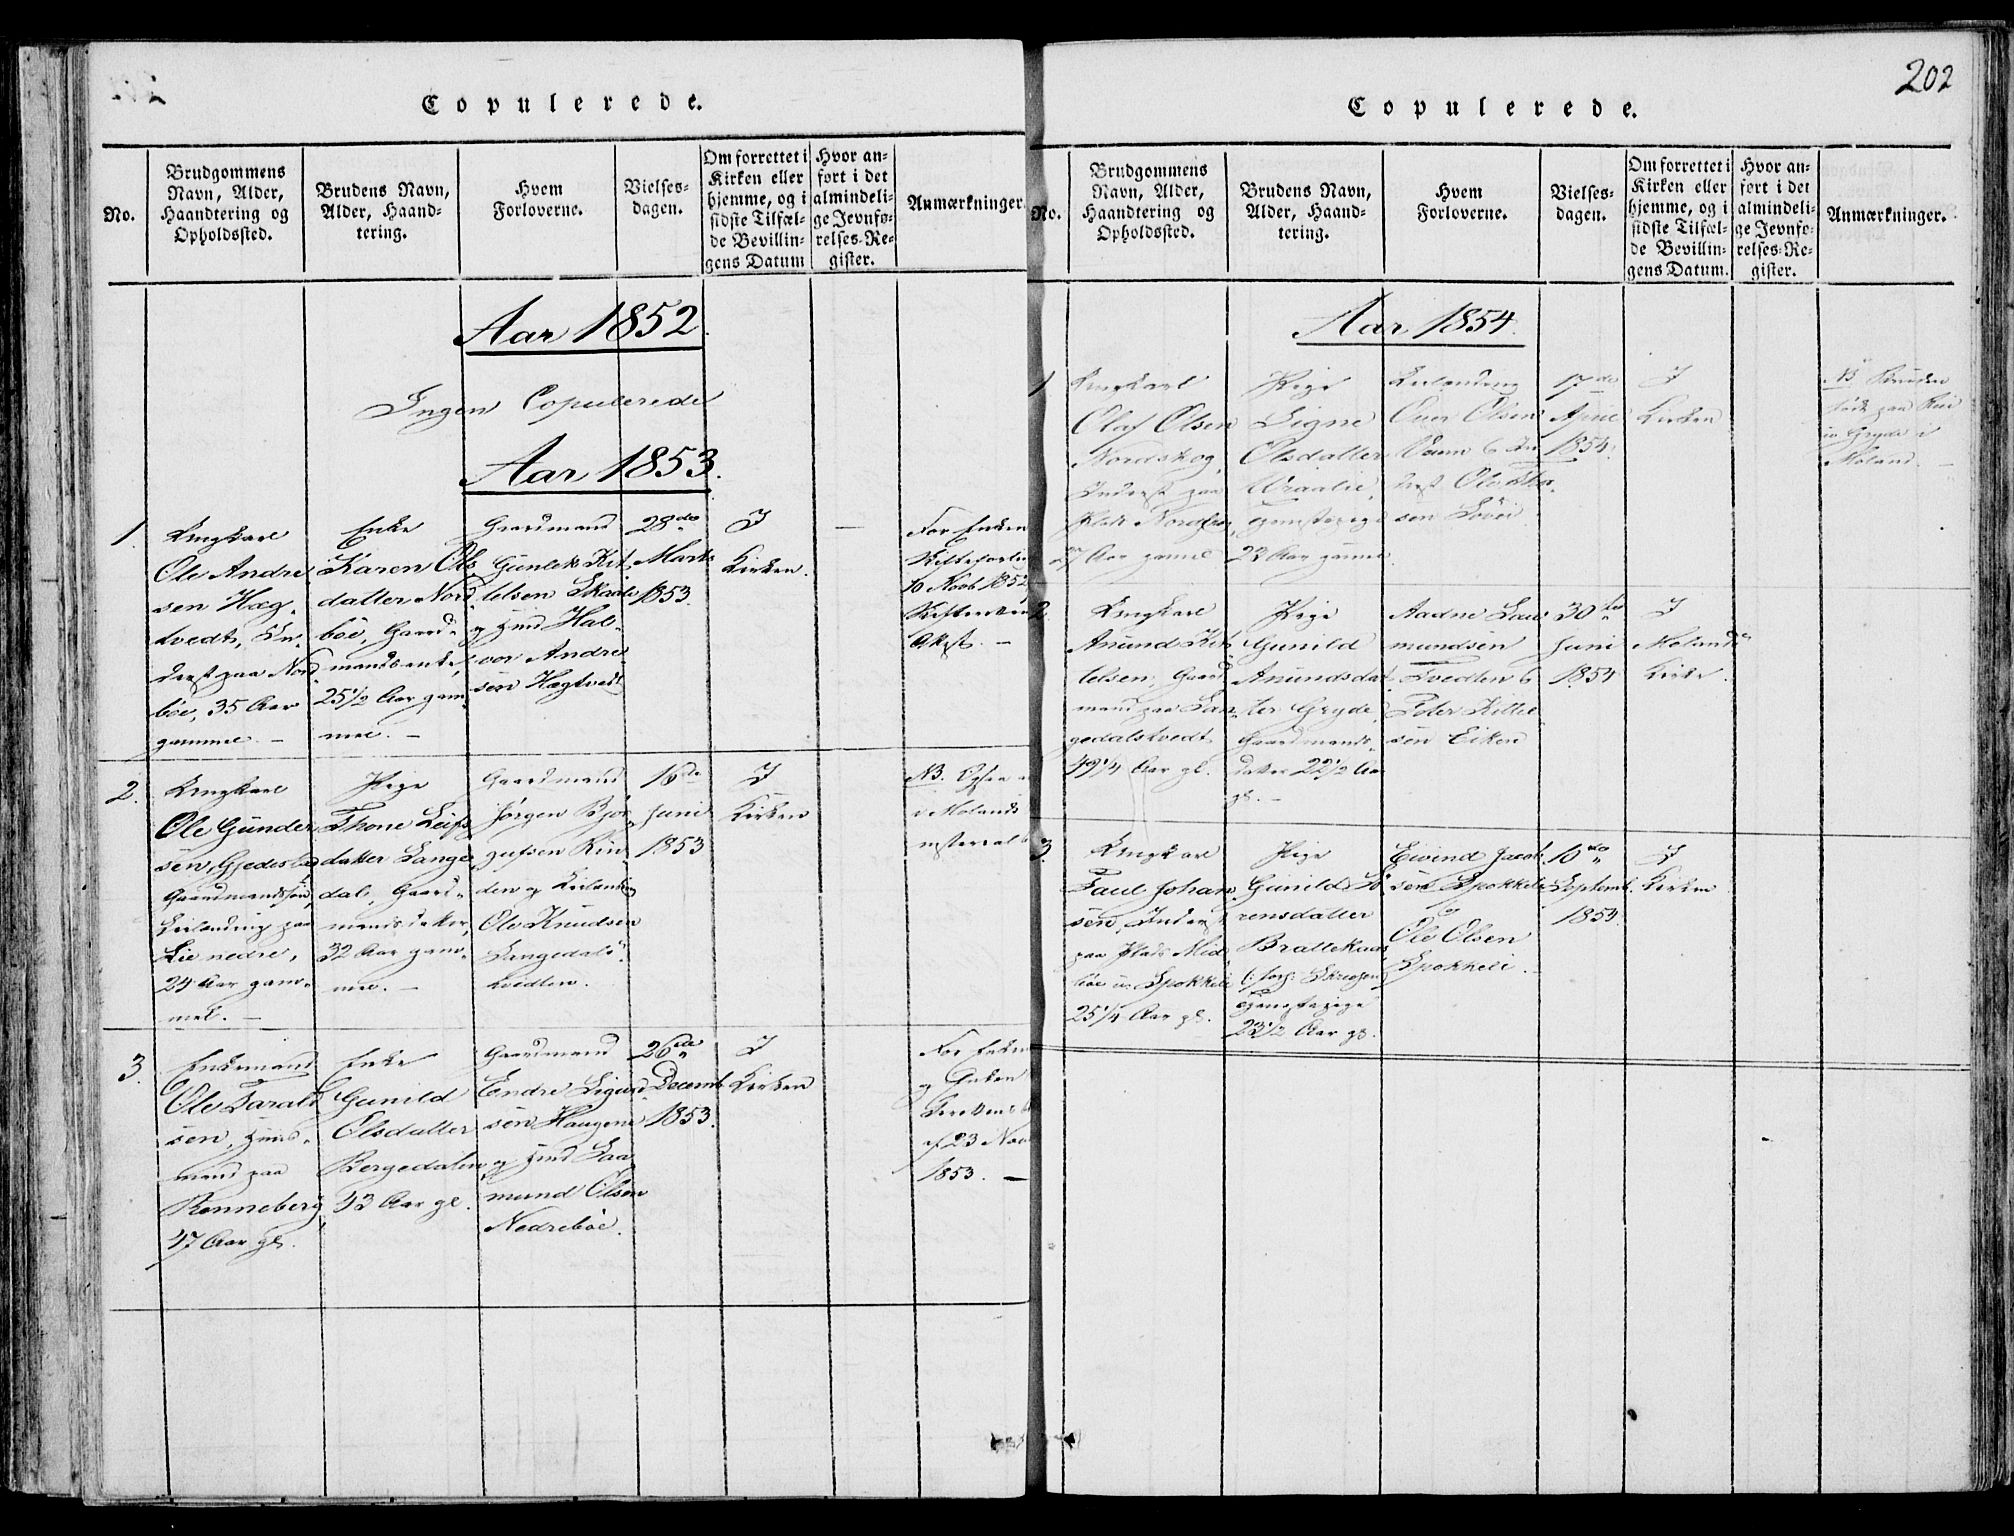 202
Copulerede.
No.
Brudgommens
Navn, Alder,
Haandtering og
Opholdssted.
Brudens Navn,
Alder, Haand-
tering.
Hvem
Forloverne.
Vielses-
dagen.
Om forrettet i
Kirken eller
hjemme, og i
sidste Tilfæl-
de Bevillin-
gens Datum
Hvor an-
ført i det
almindeli-
ge Jevnfø-
relses-Re-
gister.
Anmærkninger.
Aar 1852.
Ingen Copulerede
Aar 1853.
1.
Ungkarl
Ole Andre
sen Hæg-
tvedt, In-
derst paa Nord
böe, 35 Aar
gammel. -
Enke
Karen Ols
datter Nord
böe, Gaard-
mandsenke,
25 1/2 Aar gam-
mel. -
Gaardmand
Gunlek Kit
telsen Skaale
og Hmd Hal-
vor Andre
sen Hægtvedt
28de
Marts
1853.
I
Kirken.
For Enken
10 Novb 1852
2.
Ungkarl
Ole Gunder
sen, Gjedebo
Gaardmandssön,
Leilænding paa
Lie nedre,
24 Aar gam-
mel. -
Pige
Thone Leifs
datter Lange
dal, Gaard-
mandsdatter,
32 Aar gam-
mel. -
Gaardmand
Jörgen Bjor
gufsen Rin
den og Leilænding
Ole Knudsen
Langedals
tvedten.
16de
Juni
1853
I
Kirken
NB.
i Molands
3.
Enkemand
Ole Tarald
sen, Huus-
mand paa
Rønneberg
47 Aar gl.
Enke
Gunild
Olsdatter
Bergedalen
43 Aar gl.
Gaardmand
Endre Sigurd
sen Haugene
og Hmd Laa
mund Olsen
Nedreböe.
26de
Decemb
1853.
I
Kirken
For Enkem
og Enken
af 23 Nov
1853. -
Copulerede.
No.
Brudgommens
Navn, Alder,
Haandtering og
Opholdssted.
Brudens Navn,
Alder, Haand-
tering.
Hvem
Forloverne.
Vielses-
dagen.
Om forrettet i
Kirken eller
hjemme, og i
sidste Tilfæl-
de Bevillin-
gens Datum.
Hvor an-
ført i det
almindeli-
ge Jevnfø-
relses-Re-
gister.
Anmærkninger.
Aar 1854.
1
Ungkarl
Olaf Olsen
Nordskog,
Inderst paa
27 Aar gamel
Pige
Signe
Olsdatter
Vraalie,
tjenstepige
22 Aar gamel
Leilænding
Ole
sen Lövei
17de
April
1854.
I
Kirken
NB Bruden
født paa
u Gryde i
Moland. -
2.
Ungkarl
Anund Kit
telsen, Gaard
mand paa Lan
gedalstvedt
49 1/4 Aar gl.
Pige
Gunild
Anundsdat
ter Gryde,
Gaardmands-
datter 22 1/2 Aar
gl. -
Aadne Laa
mundsen
Tvedten &
Peter Kittil
sen Eiken
30te
Juni
1854
I
Molands
Kirke.
3.
Ungkarl
Paul Johan
sen, Inderst
paa Plads Mid
böe u. Spokkeli
25 1/4 Aar gl.
Pige
Gunild Sö
rensdatter
Brattekaas
tjenstepige
23 1/2 Aar gl.
Eivind Jacob
sen Spokkeli
og
Ole Olsen
Spokkeli.
10de
Septemb.
1854.
I
Kirken